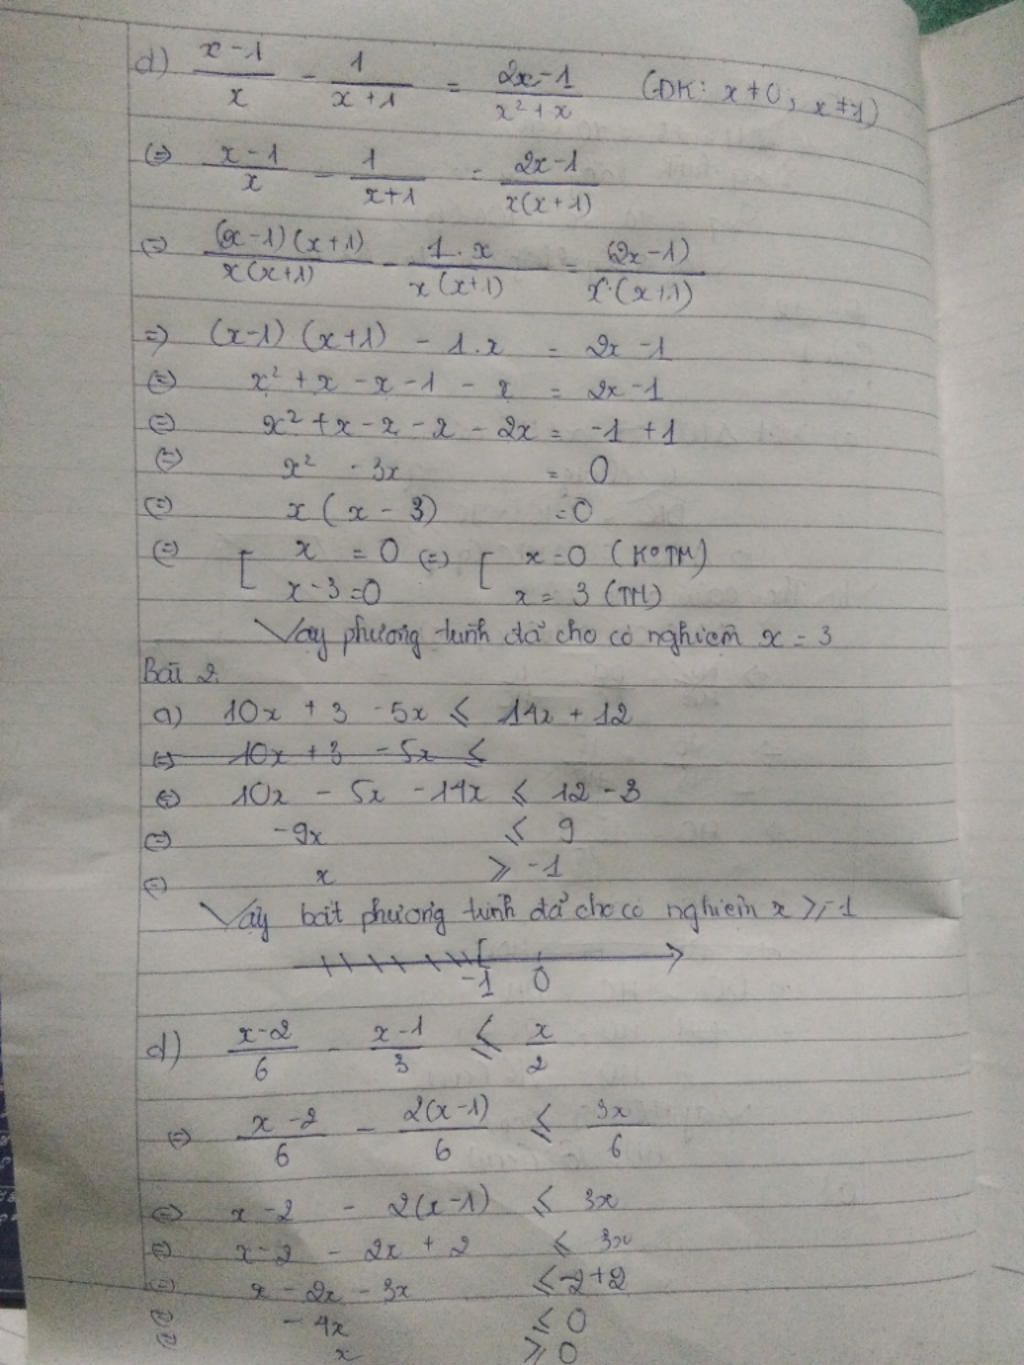 d) (x-1)/x - 1/(x+1) = (2x-1)/(x²+x) (ĐK: x ≠ 0; x ≠ -1)
(=) (x-1)/x - 1/(x+1) = (2x-1)/(x(x+1))
(=) (x-1)(x+1)/(x(x+1)) - 1.x/(x(x+1)) = (2x-1)/(x.(x+1))
=) (x-1)(x+1) - 1.x = 2x-1
(=) x² + x - x - 1 - x = 2x-1
(=) x² + x - x - x - 2x = -1 + 1
(=) x² - 3x = 0
(=) x(x - 3) = 0
(=) [ x = 0 (=) [ x = 0 (KoTM)
x-3=0 x = 3 (TM)
Vậy phương trình đã cho có nghiệm x = 3
Bài 2.
a) 10x + 3 - 5x ≤ 14x + 12
(=) 10x + 3 - 5x ≤
(=) 10x - 5x - 14x ≤ 12 - 3
(=) -9x ≤ 9
(=) x ≥ -1
Vậy bất phương trình đã cho có nghiệm x ≥ -1
-1 0
d) (x-2)/6 - (x-1)/3 ≤ x/2
(=) (x-2)/6 - 2(x-1)/6 ≤ 3x/6
(=) x-2 - 2(x-1) ≤ 3x
(=) x-2 - 2x + 2 ≤ 3x
(=) x - 2x - 3x ≤ -2+2
(=) -4x ≤ 0
(=) x ≥ 0